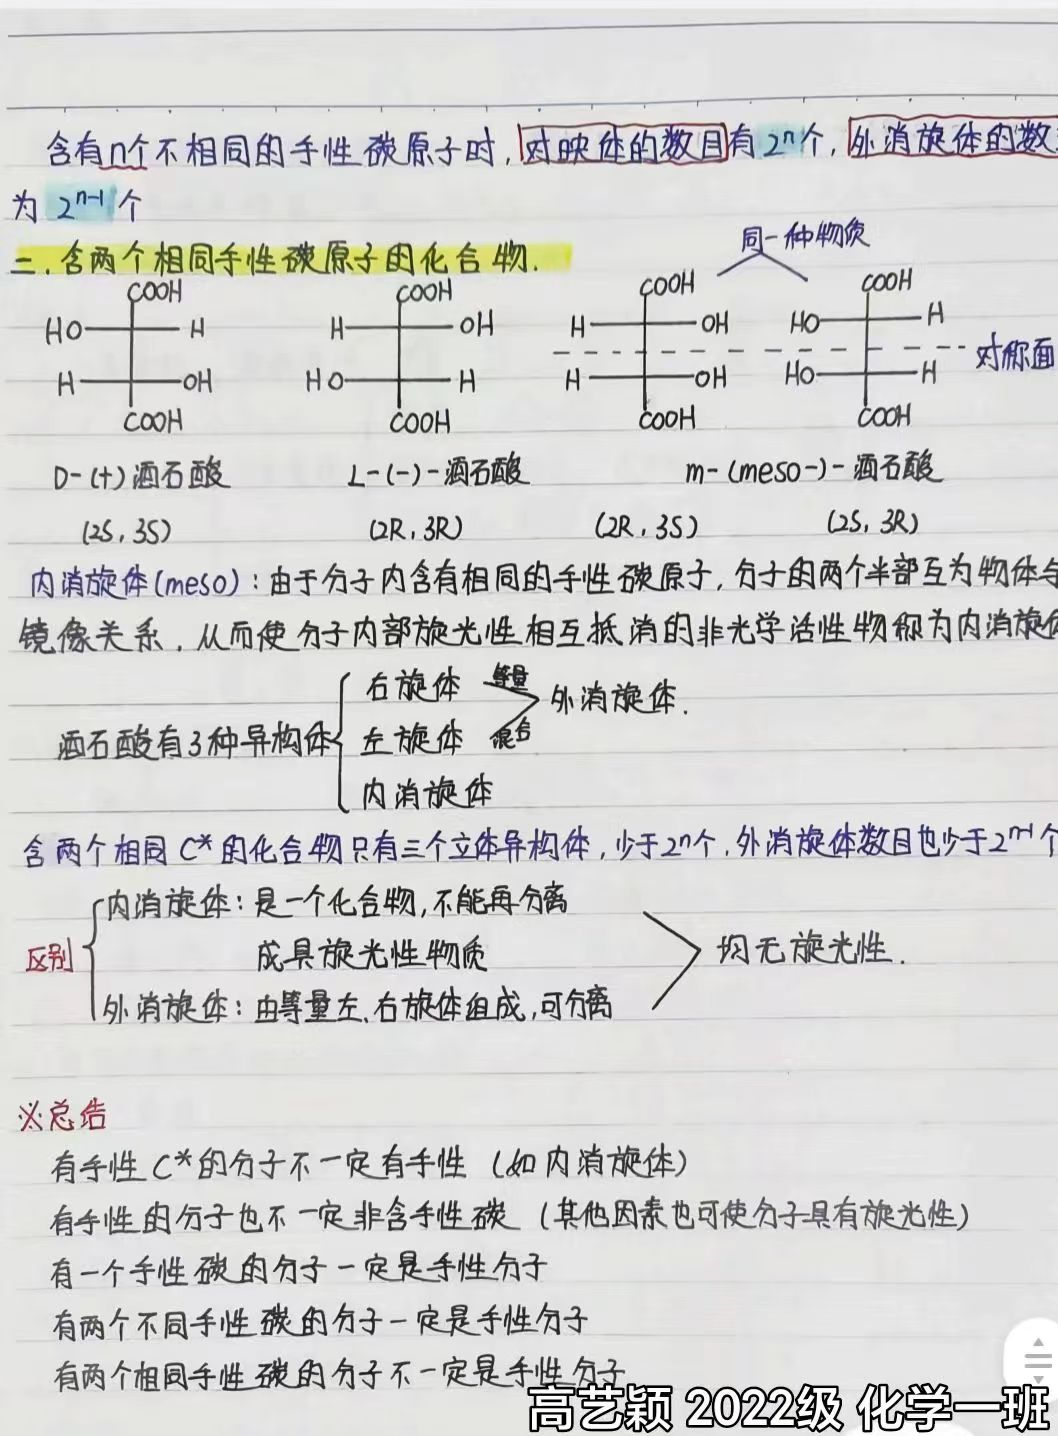 含有n个不相同的手性碳原子时,对映体的数目有2ⁿ个,外消旋体的数
为 2ⁿ⁻¹个
二.含两个相同手性碳原子的化合物.
同一种物质
COOH COOH COOH COOH
HO H H OH H OH HO H
对称面
H OH HO H H OH HO H
COOH COOH COOH COOH
D-(+)酒石酸 L-(-)-酒石酸 m-(meso-)-酒石酸
(2S,3S) (2R,3R) (2R,3S) (2S,3R)
内消旋体(meso):由于分子内含有相同的手性碳原子,分子的两个半部互为物体与
镜像关系,从而使分子内部旋光性相互抵消的非光学活性物称为内消旋体
右旋体 等量
外消旋体.
酒石酸有3种异构体 左旋体 混合
内消旋体
含两个相同C*的化合物只有三个立体异构体,少于2ⁿ个,外消旋体数目也少于2ⁿ⁻¹个
内消旋体:是一个化合物,不能再分离
区别 成具旋光性物质 均无旋光性.
外消旋体:由等量左、右旋体组成,可分离
※总结
有手性C*的分子不一定有手性(如内消旋体)
有手性的分子也不一定非含手性碳(其他因素也可使分子具有旋光性)
有一个手性碳的分子一定是手性分子
有两个不同手性碳的分子一定是手性分子
有两个相同手性碳的分子不一定是手性分子
高艺颖 2022级 化学一班